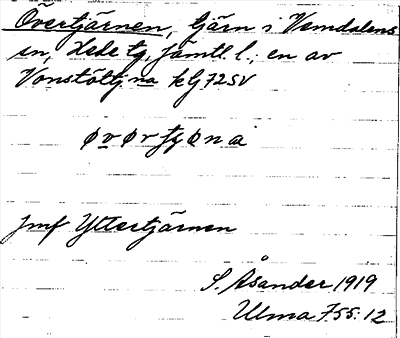 Övertjärnen, tjärn i Vemdalens
sn, Hede tg, Jämtl. l.; en av
Vonstöttjna kG72SV
øvørtjøna
jmf Yttertjärnen
S. Åsander 1919
Ulma 755:12